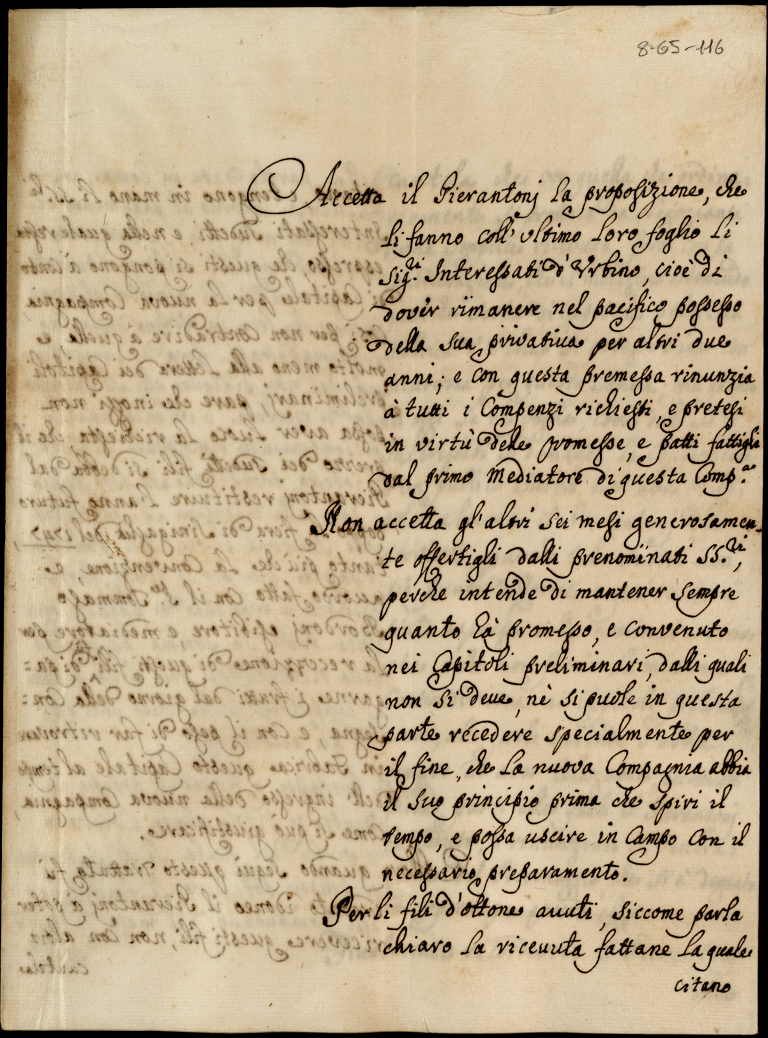 8-65-116
Accetta il Pierantonj la proposizione, che
li fanno coll' ultimo loro foglio li
Sig.ri Interessati d'Urbino, cioè di
dover rimanere nel pacifico possesso
della sua privativa per altri due
anni; e con questa premessa rinunzia
à tutti i Compenzi richiesti, e pretesi
in virtù delle promesse, e patti fattigli
dal primo Mediatore di questa Comp.a
Non accetta gl'altri sei mesi generosamen-
te offertigli dalli prenominati SS.ri,
perche intende di mantener sempre
quanto hà promesso, e convenuto
nei Capitoli preliminari, dalli quali
non si deve, nè si puole in questa
parte recedere specialmente per
il fine, che la nuova Compagnia abbia
il suo principio prima che spiri il
tempo, e possa uscire in Campo con il
necessario preparamento.
Per li fili d'ottone avuti, siccome parla
chiaro la ricevuta fattane la quale
citano